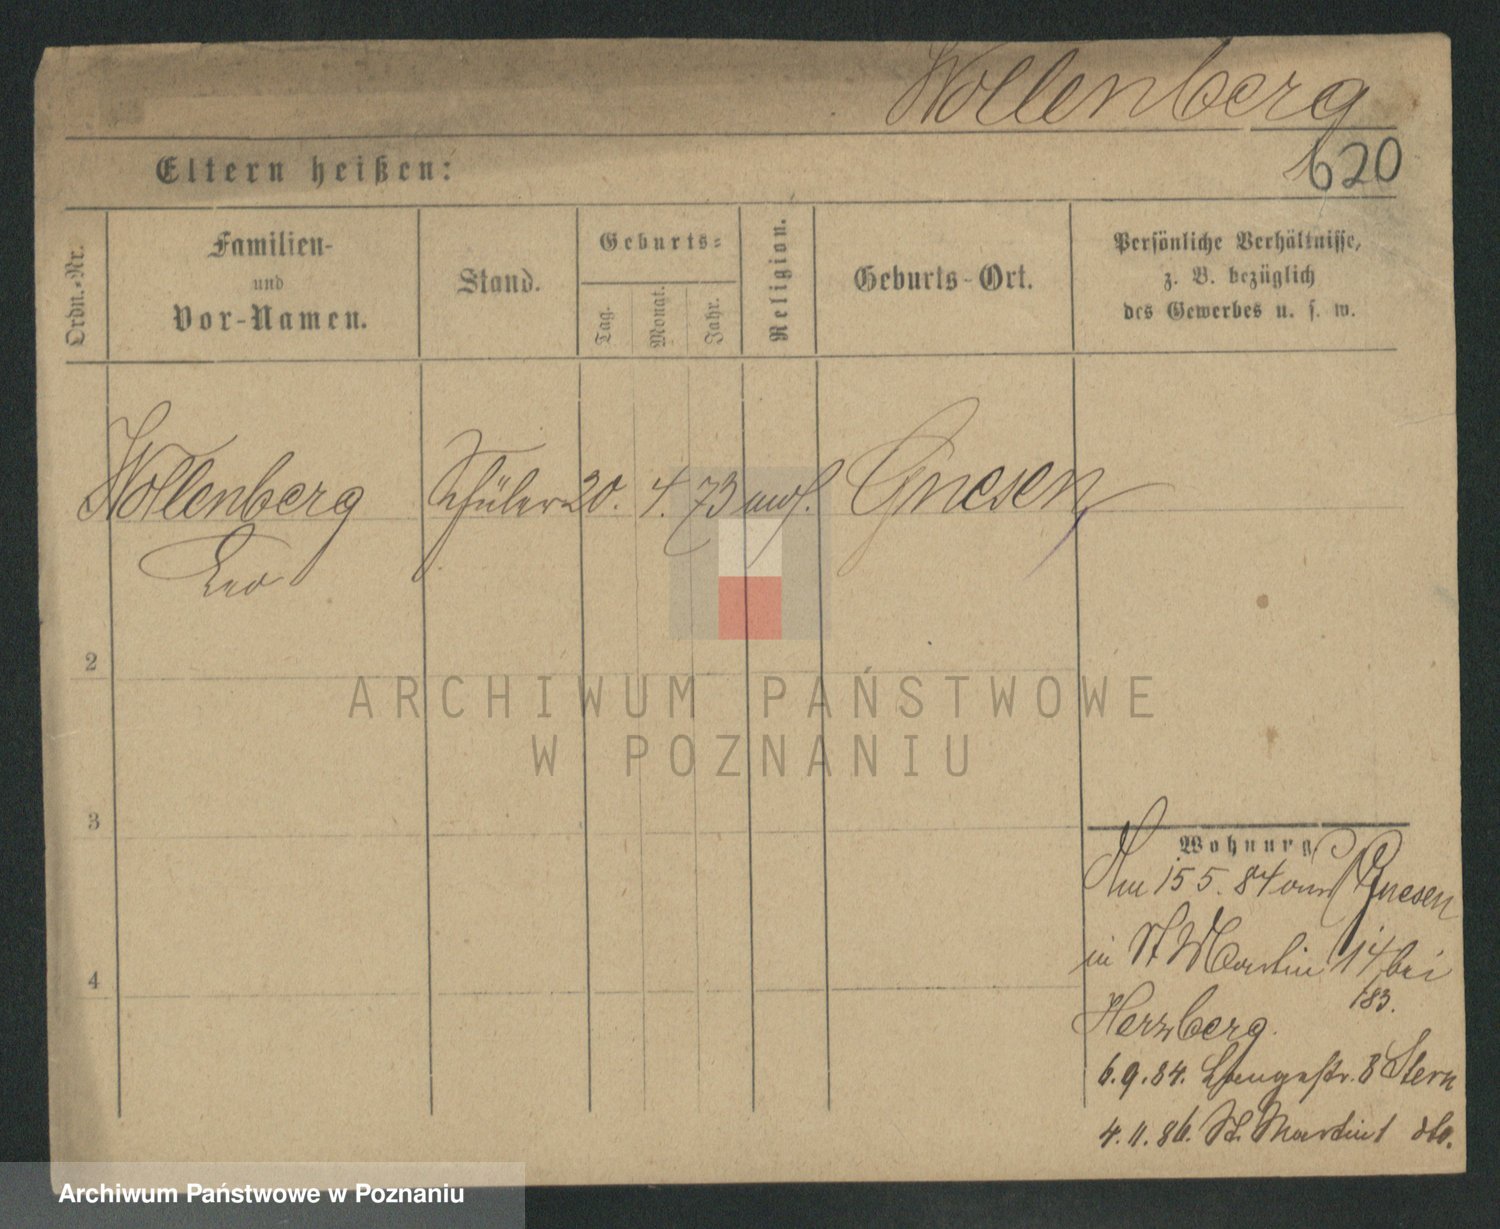 Wollenberg
620
Eltern heißen:
Ordn.-Nr.
Familien-
und
Vor-Namen.
Stand.
Geburts-
Tag.
Monat.
Jahr.
Religion.
Geburts-Ort.
Persönliche Verhältnisse,
z. B. bezüglich
des Gewerbes u. s. w.
Wollenberg Schüler 20. 4. 73 mos. Gnesen
Leo
2
ARCHIWUM PAŃSTWOWE
W POZNANIU
3
4
Wohnung
Am 15 5. 84 von Gnesen
in St Martin 14 bei
183.
Herzberg.
6.9.84. Langestr. 8 Stern
4.11.86. St. Martin 1 dto.
Archiwum Państwowe w Poznaniu